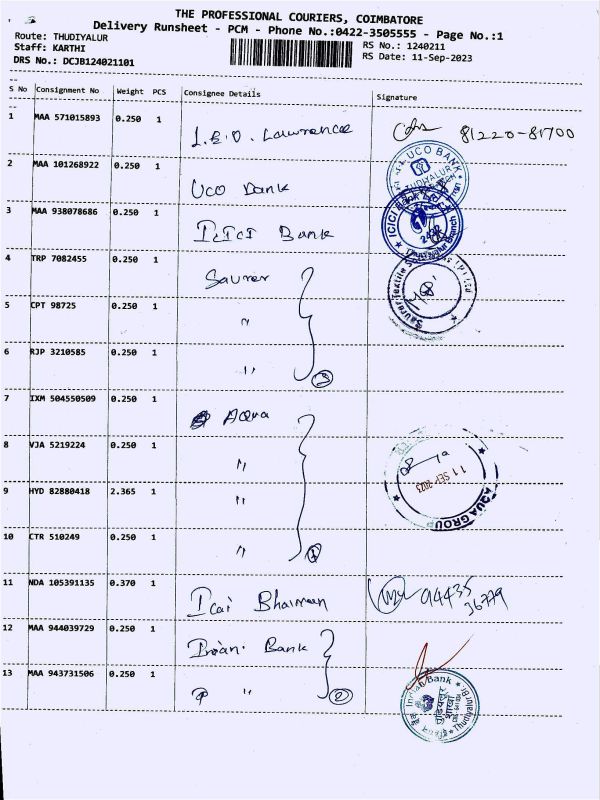 THE PROFESSIONAL COURIERS, COIMBATORE
Delivery Runsheet - PCM - Phone No.:0422-3505555 - Page No.:1
Route: THUDIYALUR
Staff: KARTHI
DRS No.: DCJB124021101
RS No.: 1240211
RS Date: 11-Sep-2023
S No Consignment No Weight PCS Consignee Details Signature
1 MAA 571015893 0.250 1 L.E.O. Lawrence 81220-81700
2 MAA 101268922 0.250 1 Uco Bank
UCO BANK THUDIYALUR
3 MAA 938078686 0.250 1 ICICI Bank
ICICI Bank Thudiyalur Branch
4 TRP 7082455 0.250 1 Saurer
Saurer Textile
5 CPT 98725 0.250 1 "
6 RJP 3210585 0.250 1 " 3
7 IXM 504550509 0.250 1 Aqua
8 VJA 5219224 0.250 1 "
9 HYD 82880418 2.365 1 "
11 SEP 2023
AQUA GROUP
10 CTR 510249 0.250 1 "
11 NDA 105391135 0.370 1 Icai Bhawan 94435
36779
12 MAA 944039729 0.250 1 Bank
13 MAA 943731506 0.250 1 " 2
Indian Bank Thudiyalur